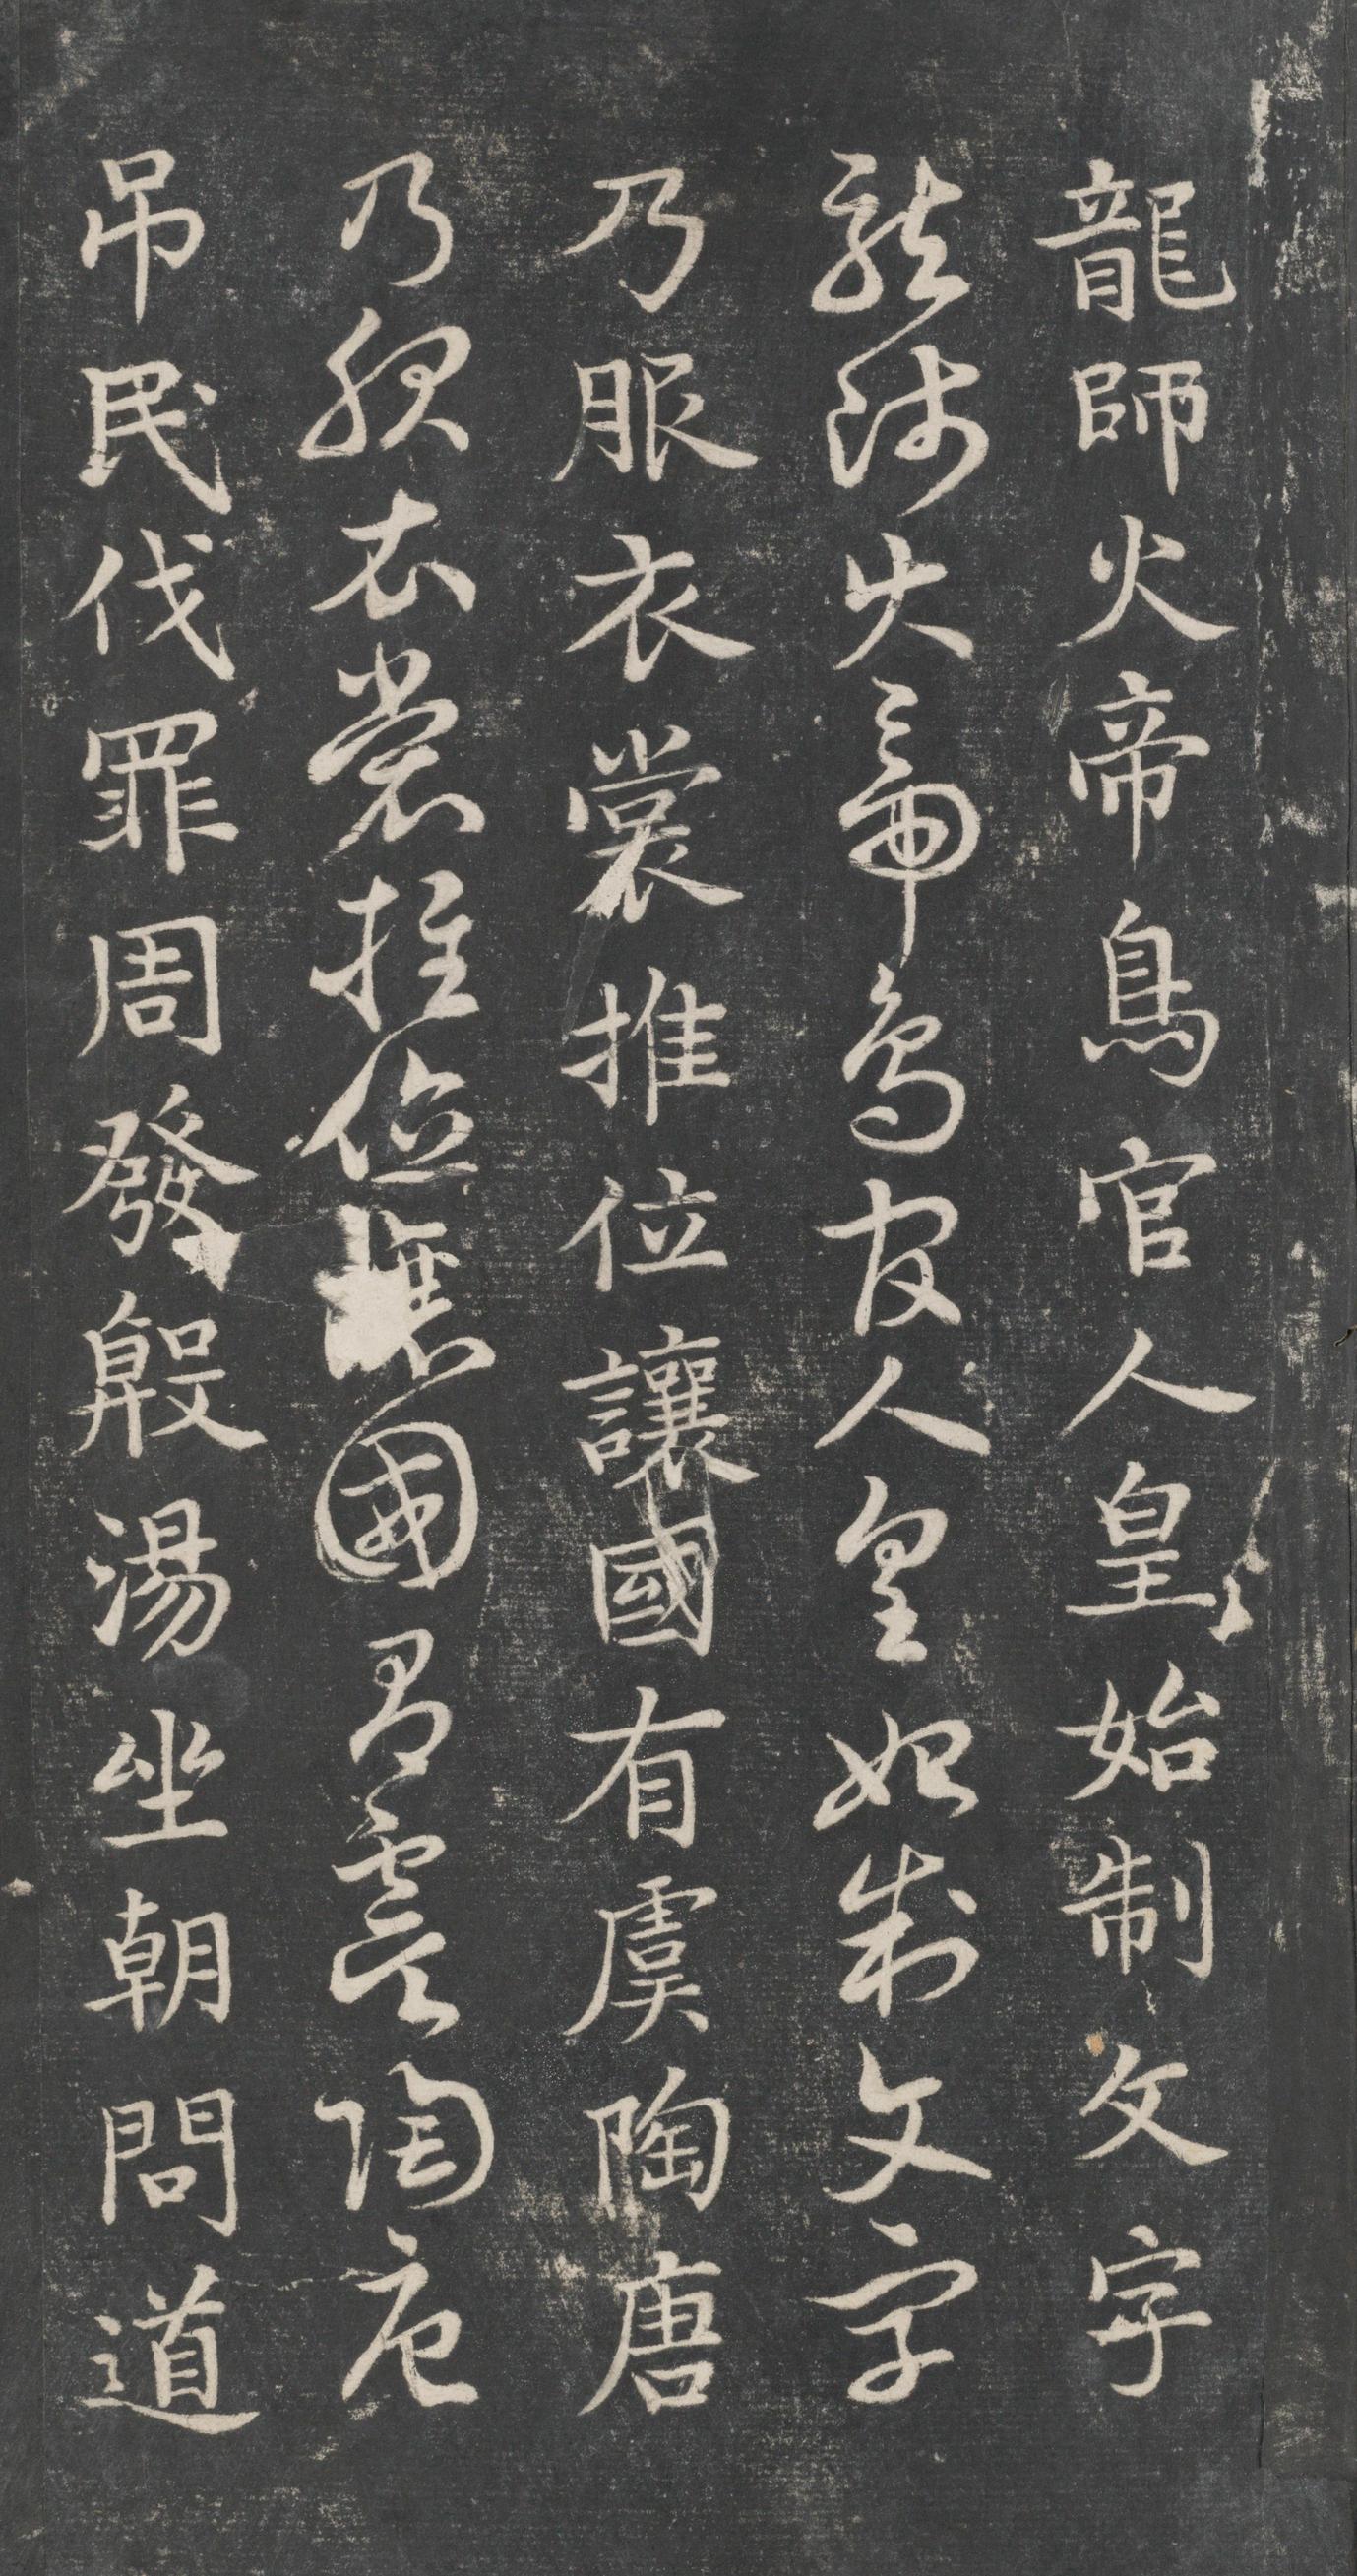 龍師火帝鳥官人皇始制文字
龍師火帝鳥官人皇始制文字
乃服衣裳推位讓國有虞陶唐
乃服衣裳推位讓國有虞陶唐
吊民伐罪周發殷湯坐朝問道